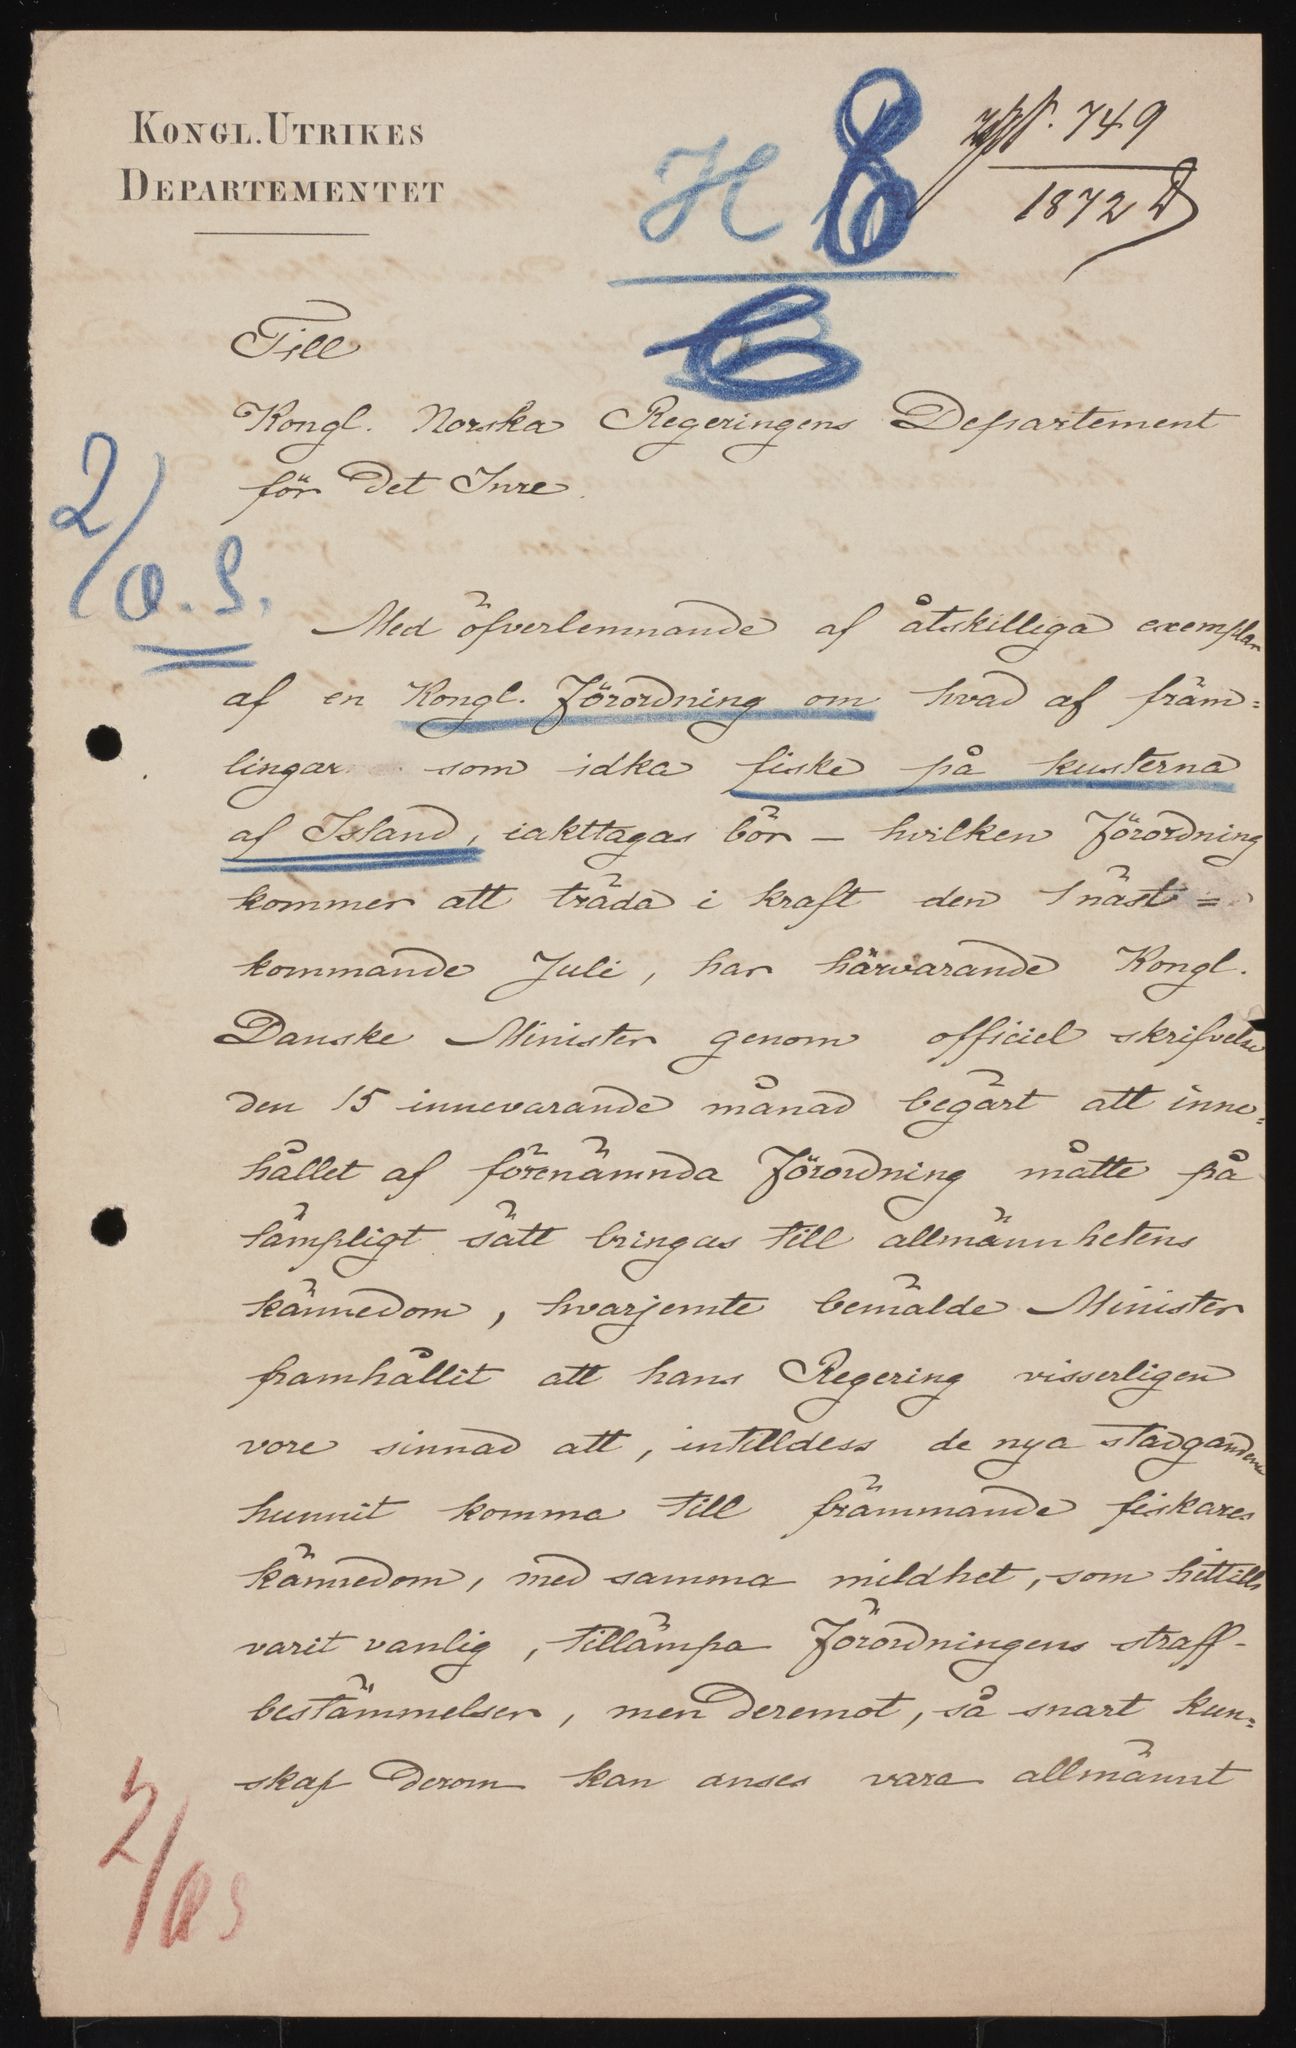 KONGL. UTRIKES
DEPARTEMENTET
H
749
1872 D
Till
Kongl. Norska Regeringens Departement
för det Inre.
2/Ø.S.
Med öfverlemnande af åtskilliga exemplar
af en Kongl. Förordning om hvad af främ=
lingar som idka fiske på kusterna
af Island, iakttagas bör – hvilken Förordning
kommer att träda i kraft den 1 näst=
kommande Juli, har härvarande Kongl.
Danske Minister genom officiel skrifvelse
den 15 innevarande månad begärt att inne=
hållet af förenämnda Förordning måtte på
lämpligt sätt bringas till allmännhetens
kännedom, hvarjemte bemälde Minister
framhållit att hans Regering visserligen
vore sinnad att, intilldess de nya stadgandena
hunnit komma till främmande fiskares
kännedom, med samma mildhet, som hittills
varit vanlig, tillämpa Förordningens straff-
bestämmelser, men deremot, så snart kun=
skap derom kan anses vara allmännt